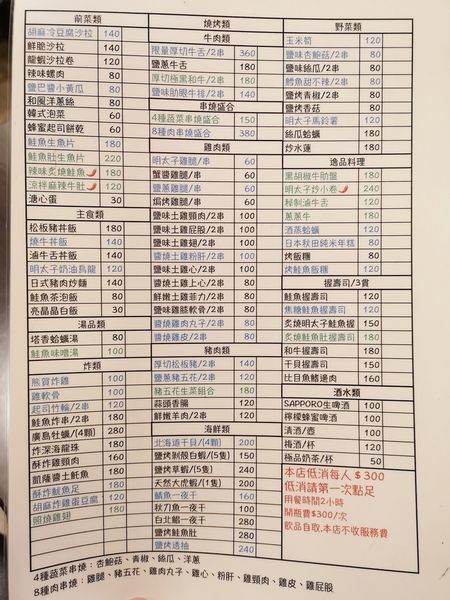 前菜類
胡麻冷豆腐沙拉 140
鮮脆沙拉 140
龍蝦沙拉卷 120
辣味螺肉 80
鹽巴醬小黃瓜 80
和園洋蔥絲 80
韓式泡菜 60
蜂蜜起司餅乾 60
鮭魚生魚片 180
鮭魚肚生魚片 220
辣味炙燒鮭魚 180
涼拌麻辣牛肚 120
溏心蛋 30
主食類
松板豬丼飯 180
燒牛丼飯 140
滷牛舌丼飯 140
明太子奶油烏龍 120
日式豬肉炒麵 140
鮭魚茶泡飯 80
亮晶晶白飯 30
湯品類
塔香蛤蠣湯 80
鮭魚味噌湯 100
炸類
熊賀炸雞 100
雞軟骨 100
起司竹輪/2串 120
鮭魚炸串/2串 180
廣島牡蠣/(4顆) 280
炸深海龍珠 180
酥炸雞頸肉 160
凱薩醬土魠魚 180
酥炸魷魚足 180
胡麻炸雞蛋豆腐 120
照燒雞翅 180
燒烤類
牛肉類
限量厚切牛舌/2串 360
鹽蔥牛舌 180
厚切極黑和牛/2串 180
鹽味肋眼牛排/2串 140
串燒盛合
4種蔬菜串燒盛合 150
8種肉串燒盛合 380
雞肉類
明太子雞腿/串 60
蟹醬雞腿/串 60
鹽蔥雞腿/串 60
焗烤雞腿/串 60
鹽味土雞頸肉/2串 80
鹽味土雞屁股/2串 80
鹽味土雞翅/2串 80
醬燒土雞粉肝/2串 80
鹽味土雞心/2串 80
醬燒土雞上心/2串 80
鮮嫩土雞菲力/2串 80
鹽味雞膝軟骨/2串 80
醬燒雞肉丸子/2串 80
醬燒雞皮/2串 80
豬肉類
厚切松板豬/2串 120
鹽蔥豬五花/2串 120
豬五花生菜組合 180
蒜頭香腸 120
鮮嫩羊肉/2串 120
海鮮類
北海道干貝/(4顆) 200
鹽烤剝殼白蝦/(5隻) 150
鹽烤草蝦/(5隻) 240
天然大虎蝦/(1隻) 240
鯖魚一夜干 160
秋刀魚一夜干 100
白北鯧一夜干 280
鹽烤鮭魚肚 280
鹽烤透抽 240
野菜類
玉米筍 120
鹽味杏鮑菇/2串 80
鹽味絲瓜/2串 80
鱈魚甜不辣/2串 80
鹽烤青椒/2串 80
鹽烤香菇 80
明太子馬鈴薯 120
絲瓜蛤蠣 180
炒水蓮 180
逸品料理
黑胡椒牛肋盤 180
明太子炒小卷 240
秘制滷牛舌 120
蔥蔥牛 180
酒蒸蛤蠣 120
日本秋田純米年糕 80
烤飯糰 80
烤鮭魚飯糰 120
握壽司/3貫
鮭魚握壽司 120
焦糖鮭握壽司 120
炙燒明太子鮭魚握 150
炙燒鮭魚肚握壽司 180
和牛握壽司 180
干貝握壽司 150
比目魚鰭邊肉 160
酒水類
SAPPORO生啤酒 100
檸檬蜂蜜啤酒 100
清酒/壺 100
梅酒/杯 120
極品奶茶/杯 50
本店低消每人＄300
低消請第一次點足
用餐時間2小時
開瓶費$300/次
飲品自取,本店不收服務費
4種蔬菜串燒：杏鮑菇、青椒、絲瓜、洋蔥
8種肉串燒：雞腿、豬五花、雞肉丸子、雞心、粉肝、雞頸肉、雞皮、雞屁股